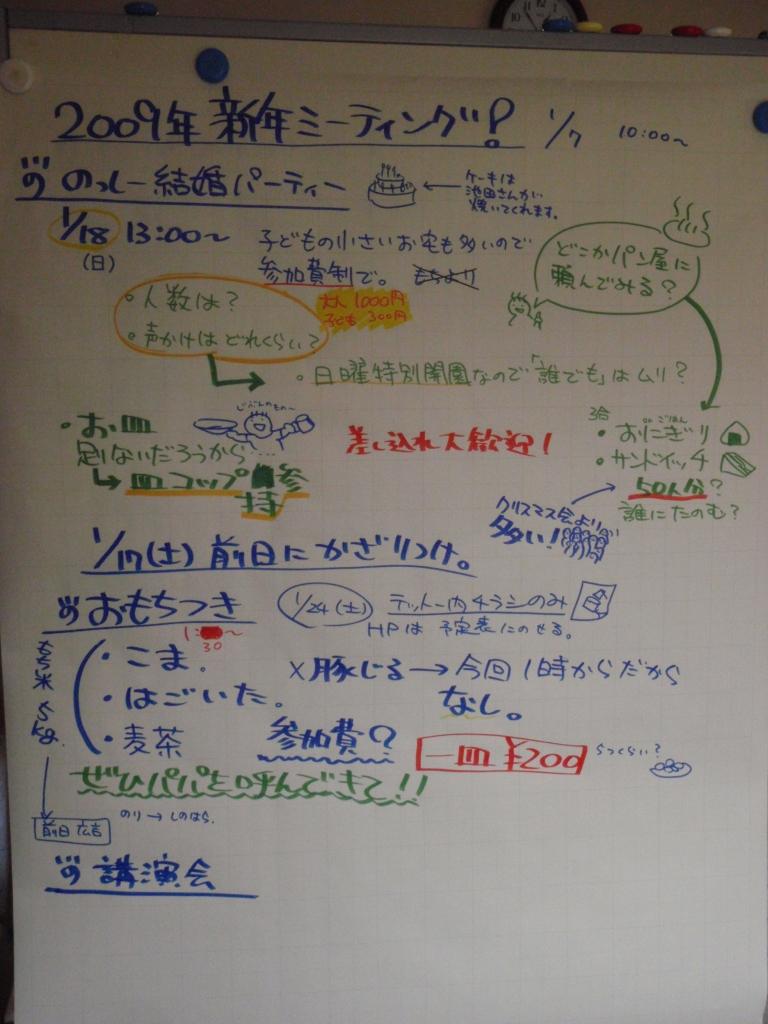 2009年 新年ミーティング! 1/7 10:00〜
のっしー結婚パーティー
ケーキは
池田さんが
焼いてくれます。
1/18 13:00〜
(日)
子どもの小さいお宅も多いので
参加費制で。 もちより
どこかパン屋に
頼んでみる?
・人数は?
・声かけはどれくらい?
大人 1000円
子ども 300円
・日曜特別開園なので「誰でも」はムリ?
・お皿
足りないだろうから…
皿 コップ 持参
じぶんのもの〜
差し込れ大歓迎!
or ごはん
・おにぎり
・サンドイッチ
50人分?
誰にたのむ?
クリスマス会より
多い!
1/17(土) 前日にかざりつけ。
おもちつき
1/24(土) テット一内チラシのみ
HPは 予定表にのせる。
1:30〜
もち米 5kg
・こま。
・はごいた。
・麦茶
×豚じる→今回1時からだから
なし。
参加費?
一皿 ¥200
5つくらい?
ぜひパパを呼んできて!!
前日 広告
のり→しのはら。
講演会